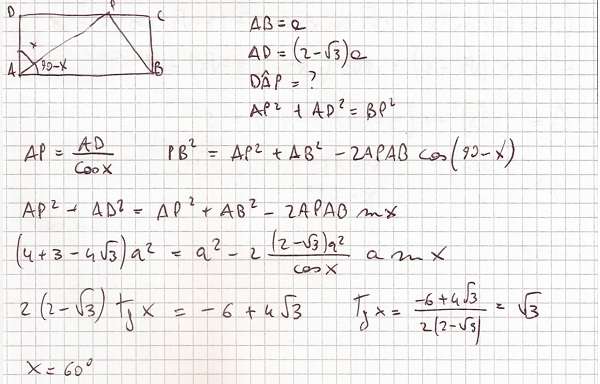 D P C
AB = a
AD = (2-√3)a
x
A 90-x B
DÂP = ?
AP² + AD² = BP²
AP = AD/cosx PB² = AP² + AB² - 2APAB cos(90-x)
AP² + AD² = AP² + AB² - 2APAB sinx
(4+3-4√3)a² = a² - 2 (2-√3)a²/cosx a sinx
2(2-√3) Tgx = -6+4√3 Tgx = -6+4√3/2(2-√3) = √3
x = 60°